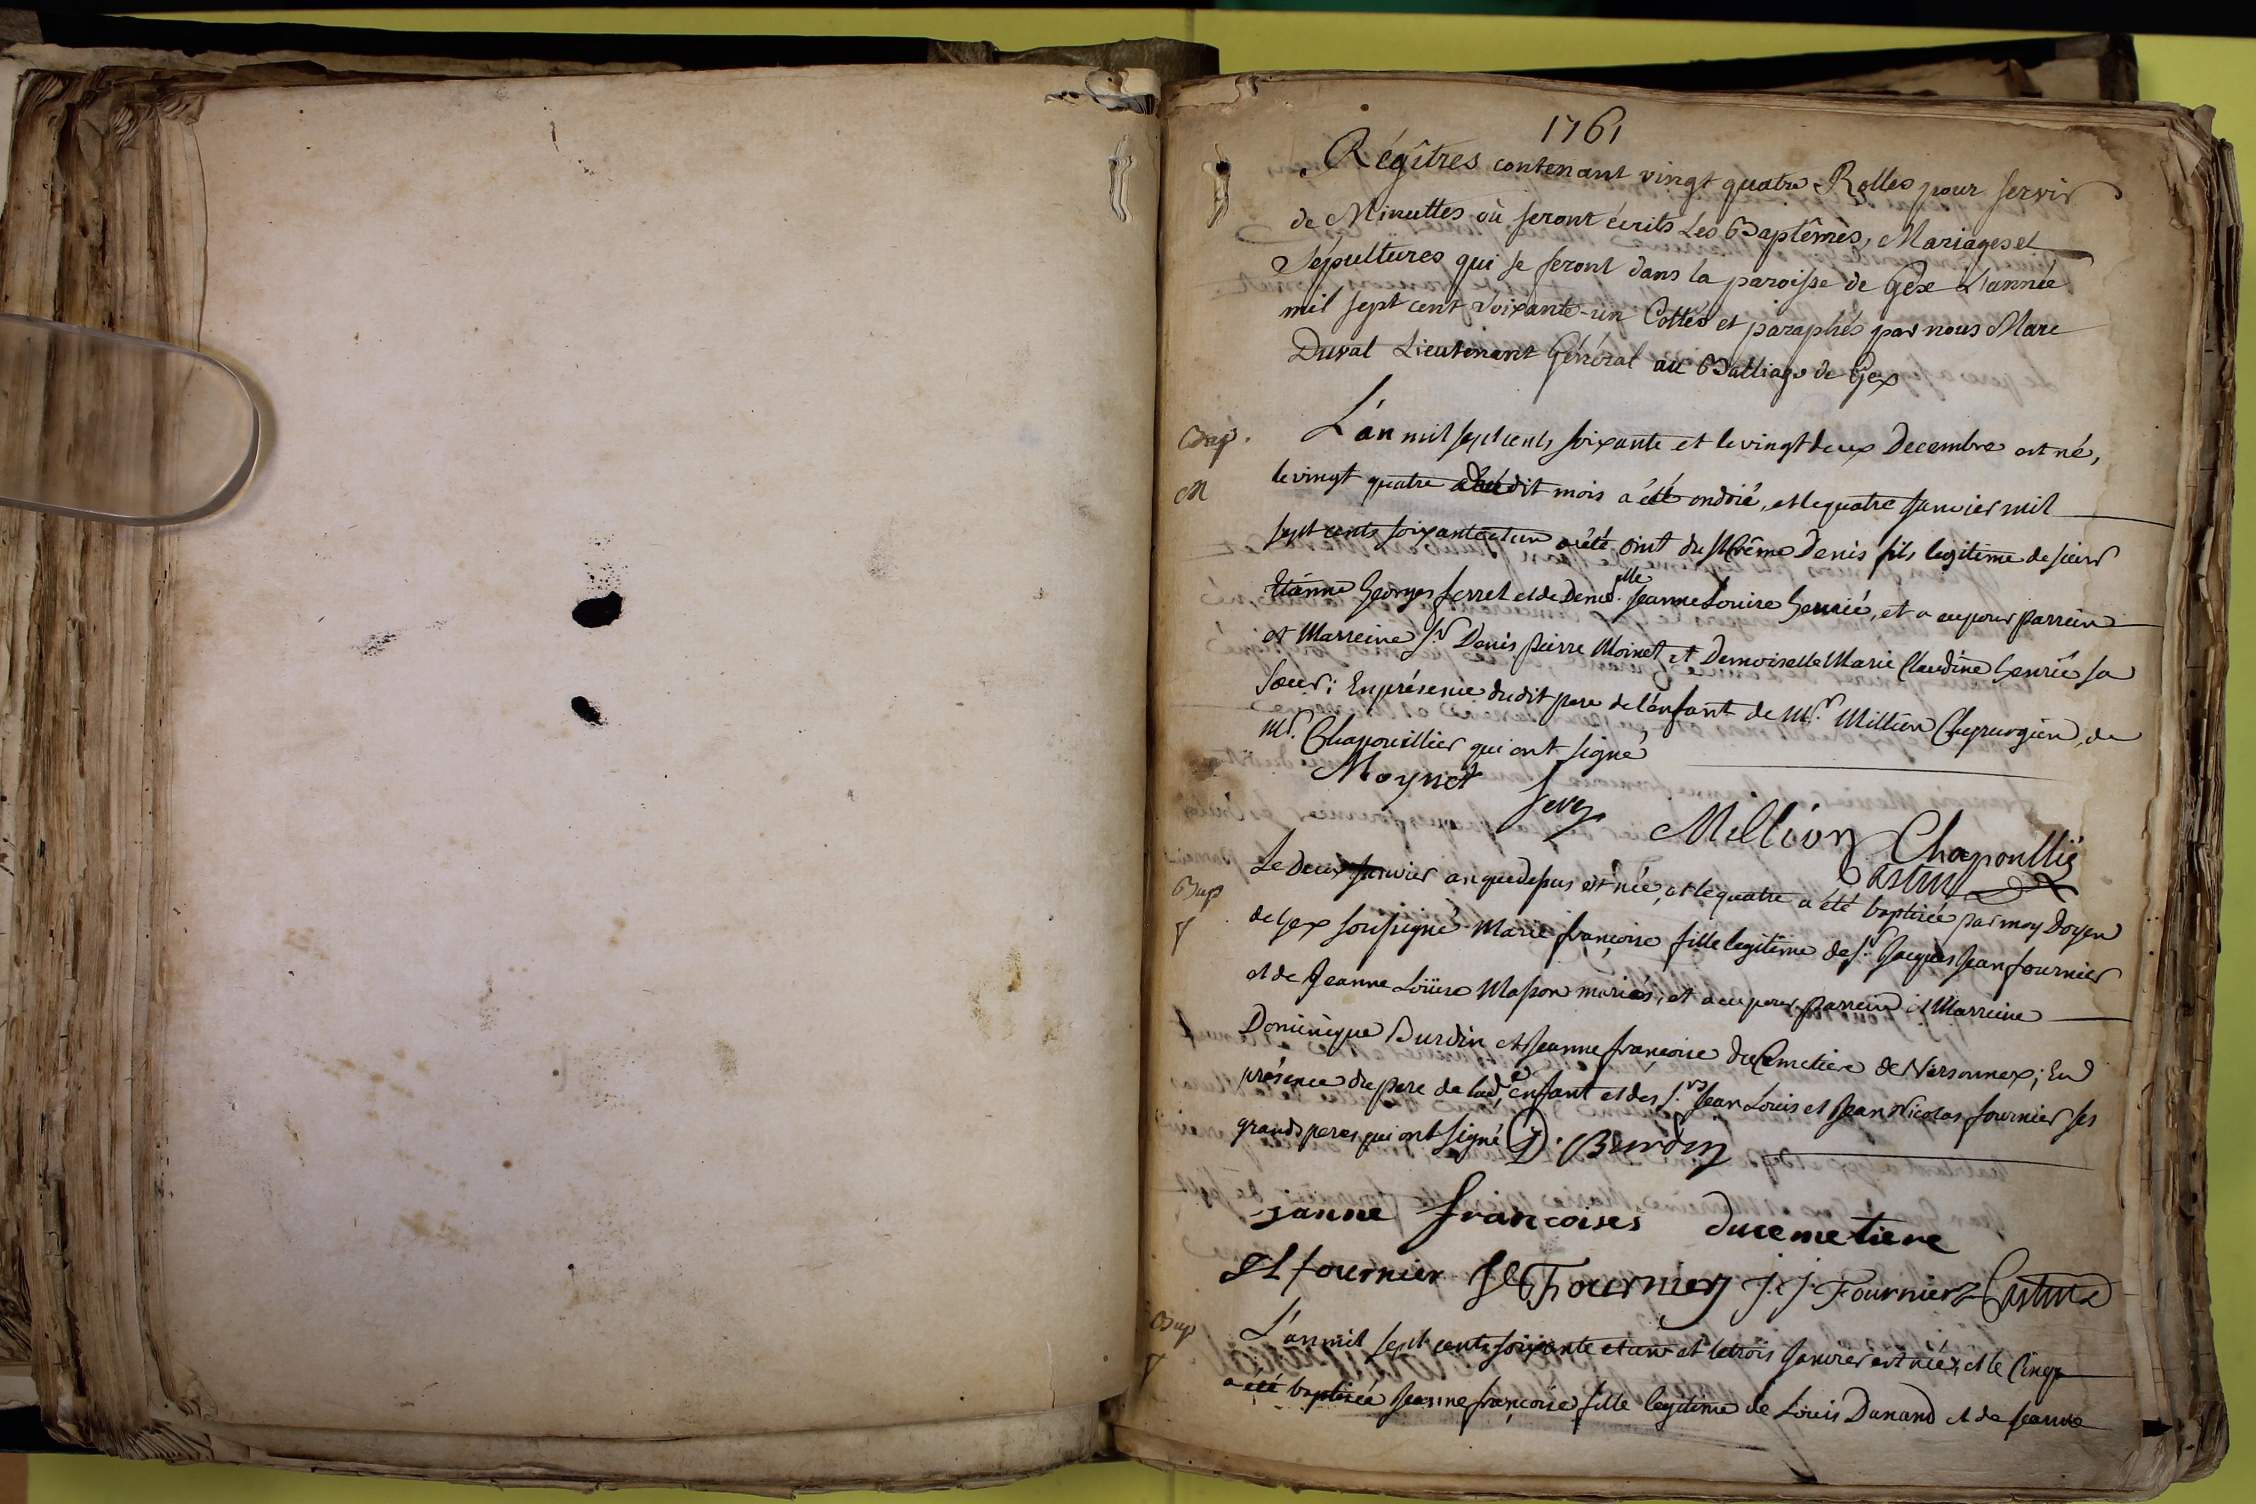 1761
Régîtres contenant vingt quatre Rolles pour servir
de Minuttes où seront écrits Les Baptêmes, Mariages et
Sépultures qui se feront dans la paroisse de Gex L'année
mil sept cent soixante-un Cottés et paraphés par nous Marc
Duval Lieutenant Général au Balliage de Gex
Bap.
L'an mil sept cents soixante et le vingt deux Decembre est né,
M
le vingt quatre dudit mois a été ondoié, et le quatre Janvier mil
sept cents soixante et un a été oint du St Crême Denis fils legitime de sieur
Etienne Georges ferret et de Demoiselle Jeanne Louise henrié, et a eu pour Parrein
et Marreine Sr Denis pierre Moinet et Demoiselle Marie Claudine henrié sa
soeur; En présence dudit pere de l'enfant de Mr. Million Chyrurgien, de
Mr. Chapouillier qui ont signé
Moynet
Million Chapoullié
Castin
Bap
Le deux Janvier an que dessus est née, et le quatre a été baptisée par moy Doyen
F
de Gex soussigné Marie françoise fille legitime de sr. Jacques Jean fournier
et de Jeanne Loüise Masson mariés, et a eu pour parrein et Marreine
Dominique Burdin et Jeanne françoise du Cemetiere de Versonnex; En
présence du pere de lad.e enfant et des s.rs Jean Louis et Jean Nicolas fournier ses
grands peres qui ont signé D. Burdin
janne françoises ducemetiere
JL fournier Fournier J. J. Fournier Castin
Bap
L'an mil sept cents soixante et un et le trois Janvier est née, et le Cinq
F
a été baptisée Jeanne françoise fille legitime de Loüis Danand et de Jeanne